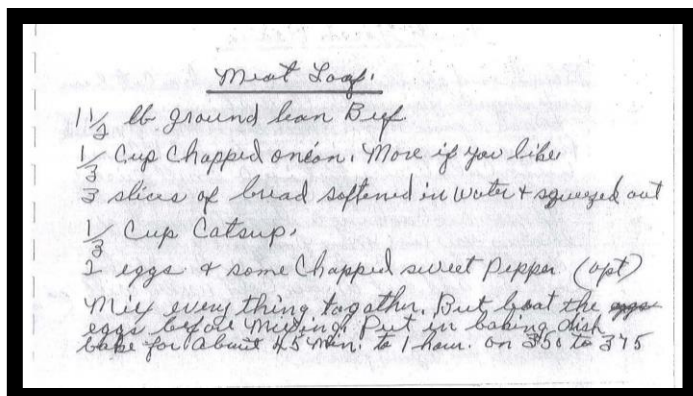 Meat Loaf.
1 1/2 lb ground lean Beef
1/3 Cup Chapped onion. More if you like
3 slices of bread softened in water & squeezed out
1/3 Cup Catsup.
2 eggs & some Chapped sweet Pepper (opt)
Mix every thing togather. But beat the
eggs before mixing. Put in baking dish
bake for about 45 min. to 1 hour. on 350 to 375